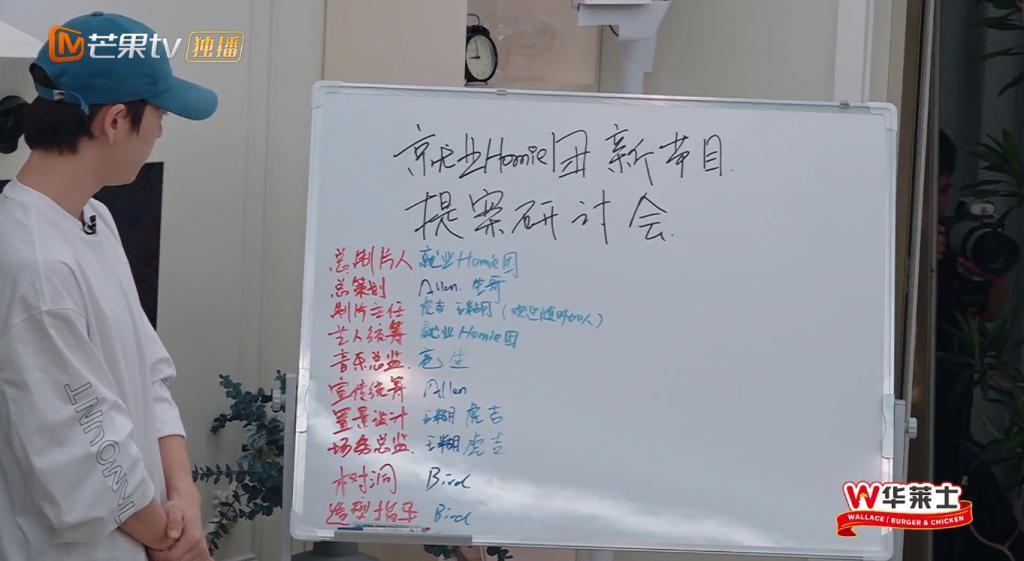 芒果tv 独播
就业Homie团新节目
提案研讨会
总制片人 就业Homie团
总策划 Allen. 生哥
制片主任 虎吉 瑚 (欢迎随时加入)
艺人统筹 就业Homie团
音乐总监. 亮 生
宣传统筹 Allen
置景设计 瑚 虎吉
场务总监. 瑚 虎吉
树洞 Bird
造型指导 Bird
TNUOMMT
W华莱士
WALLACE BURGER & CHICKEN